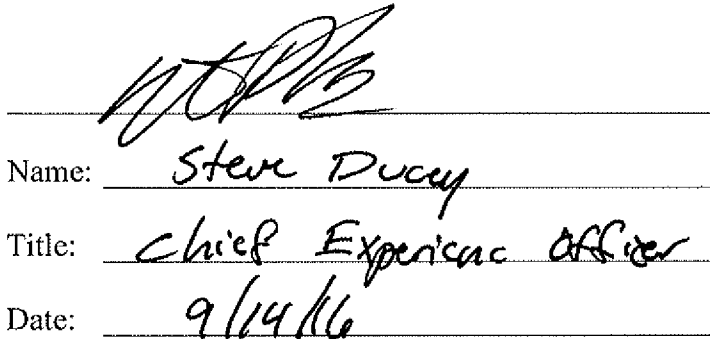 Name: Steve Ducey
Title: Chief Experience Officer
Date: 9/14/16